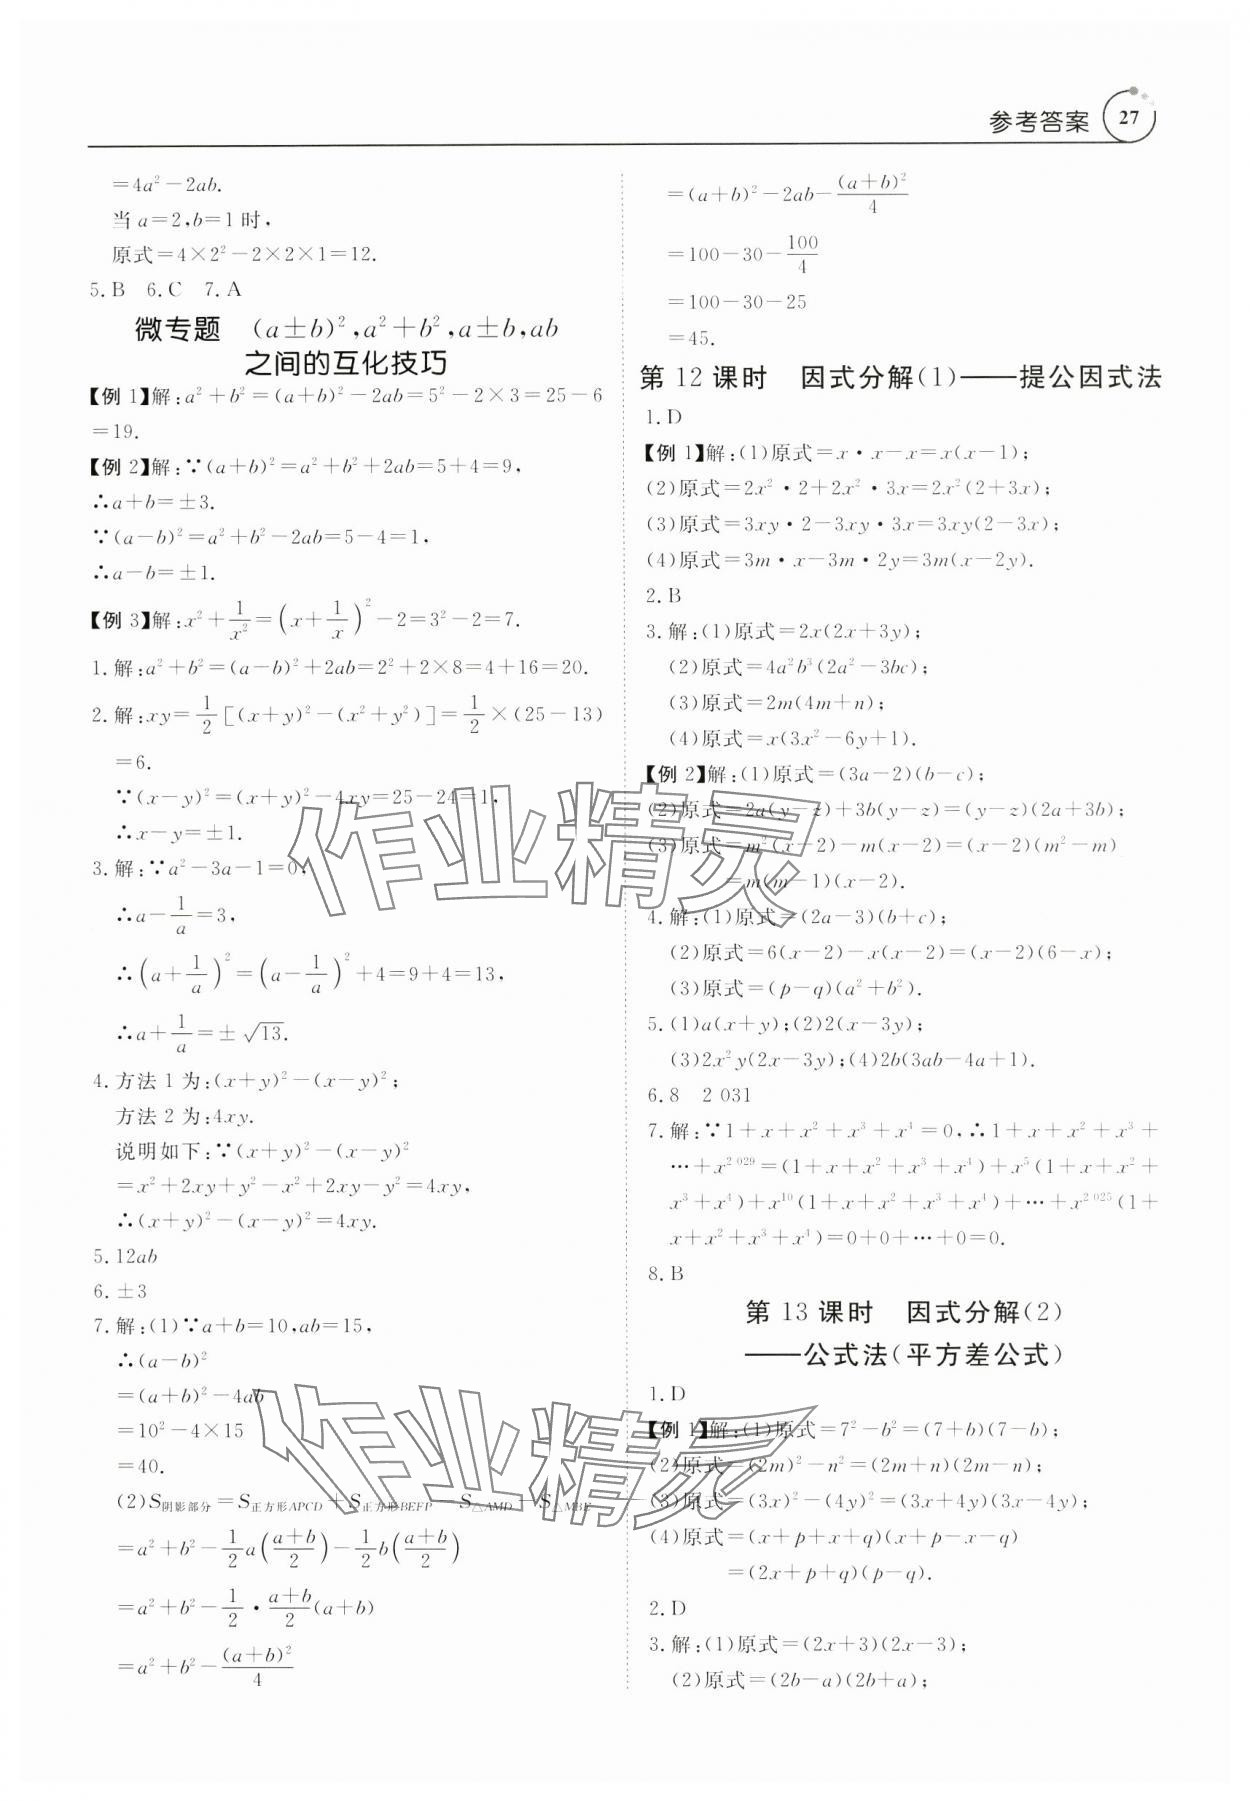 参考答案 27
=4a²-2ab.
当 a=2,b=1 时,
原式=4×2²-2×2×1=12.
5.B 6.C 7.A
微专题 (a±b)²,a²+b²,a±b,ab
之间的互化技巧
【例 1】解:a²+b²=(a+b)²-2ab=5²-2×3=25-6
=19.
【例 2】解:∵(a+b)²=a²+b²+2ab=5+4=9,
∴a+b=±3.
∵(a-b)²=a²+b²-2ab=5-4=1,
∴a-b=±1.
【例 3】解:x²+1/x²=(x+1/x)²-2=3²-2=7.
1.解:a²+b²=(a-b)²+2ab=2²+2×8=4+16=20.
2.解:xy=1/2[(x+y)²-(x²+y²)]=1/2×(25-13)
=6.
∵(x-y)²=(x+y)²-4xy=25-24=1,
∴x-y=±1.
3.解:∵a²-3a-1=0,
∴a-1/a=3,
∴(a+1/a)²=(a-1/a)²+4=9+4=13,
∴a+1/a=±√13.
4.方法 1 为:(x+y)²-(x-y)²;
方法 2 为:4xy.
说明如下:∵(x+y)²-(x-y)²
=x²+2xy+y²-x²+2xy-y²=4xy,
∴(x+y)²-(x-y)²=4xy.
5.12ab
6.±3
7.解:(1)∵a+b=10,ab=15,
∴(a-b)²
=(a+b)²-4ab
=10²-4×15
=40.
(2)S阴影部分=S正方形APCD+S正方形BEFP-S△AMD-S△MBE
=a²+b²-1/2a((a+b)/2)-1/2b((a+b)/2)
=a²+b²-1/2·(a+b)/2(a+b)
=a²+b²-(a+b)²/4
=(a+b)²-2ab-(a+b)²/4
=100-30-100/4
=100-30-25
=45.
第 12 课时 因式分解(1)——提公因式法
1.D
【例 1】解:(1)原式=x·x-x=x(x-1);
(2)原式=2x²·2+2x²·3x=2x²(2+3x);
(3)原式=3xy·2-3xy·3x=3xy(2-3x);
(4)原式=3m·x-3m·2y=3m(x-2y).
2.B
3.解:(1)原式=2x(2x+3y);
(2)原式=4a²b³(2a²-3bc);
(3)原式=2m(4m+n);
(4)原式=x(3x²-6y+1).
【例 2】解:(1)原式=(3a-2)(b-c);
(2)原式=2a(y-z)+3b(y-z)=(y-z)(2a+3b);
(3)原式=m²(x-2)-m(x-2)=(x-2)(m²-m)
=m(m-1)(x-2).
4.解:(1)原式=(2a-3)(b+c);
(2)原式=6(x-2)-x(x-2)=(x-2)(6-x);
(3)原式=(p-q)(a²+b²).
5.(1)a(x+y);(2)2(x-3y);
(3)2x²y(2x-3y);(4)2b(3ab-4a+1).
6.8 2 031
7.解:∵1+x+x²+x³+x⁴=0,∴1+x+x²+x³+
…+x²⁰²⁹=(1+x+x²+x³+x⁴)+x⁵(1+x+x²+
x³+x⁴)+x¹⁰(1+x+x²+x³+x⁴)+…+x²⁰²⁵(1+
x+x²+x³+x⁴)=0+0+…+0=0.
8.B
第 13 课时 因式分解(2)
——公式法(平方差公式)
1.D
【例 1】解:(1)原式=7²-b²=(7+b)(7-b);
(2)原式=(2m)²-n²=(2m+n)(2m-n);
(3)原式=(3x)²-(4y)²=(3x+4y)(3x-4y);
(4)原式=(x+p+x+q)(x+p-x-q)
=(2x+p+q)(p-q).
2.D
3.解:(1)原式=(2x+3)(2x-3);
(2)原式=(2b-a)(2b+a);
作业精灵
作业精灵